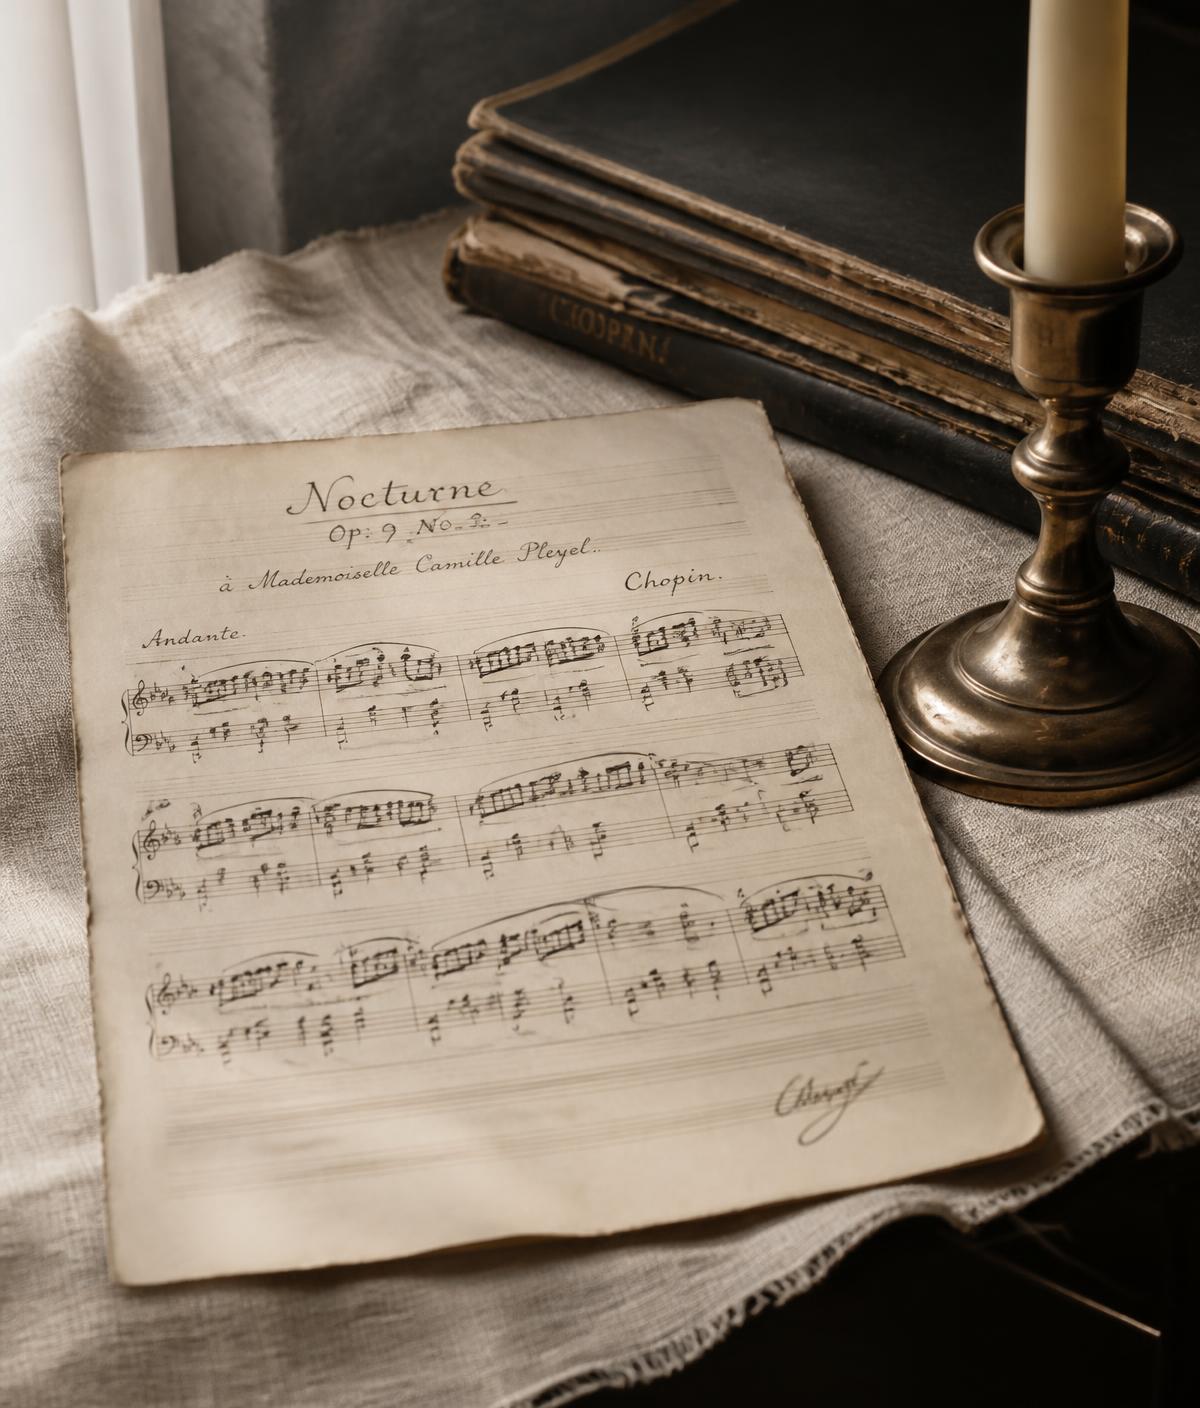 Nocturne
Op: 9 No.
à Mademoiselle Camille Pleyel..
Chopin.
Andante.